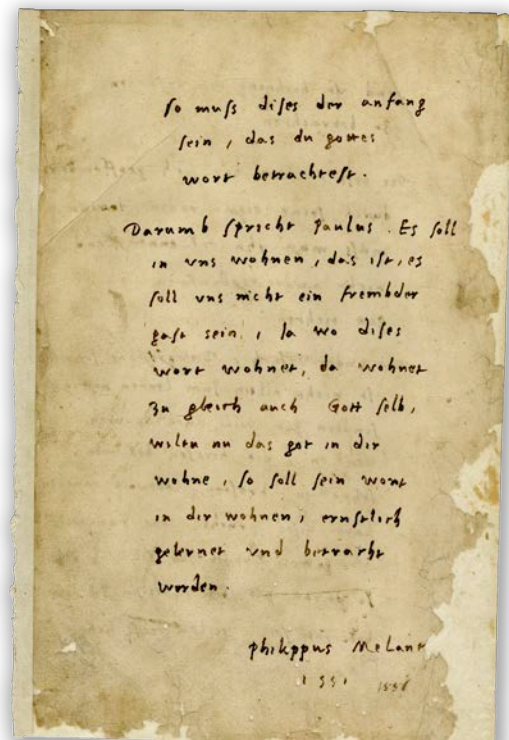 so muss dises der anfang
sein, das du gottes
wort betrachtest.
Darumb spricht Paulus. Es soll
in vns wohnen, das ist, es
soll vns nicht ein frembder
gast sein, Ja wo dises
wort wohnet, da wohnet
zu gleich auch Gott selb,
wiltu nu das got in dir
wohne, so soll sein wort
in dir wohnen, ernstlich
gelernet vnd betracht
werden.
Philippus Melant
1551 1551